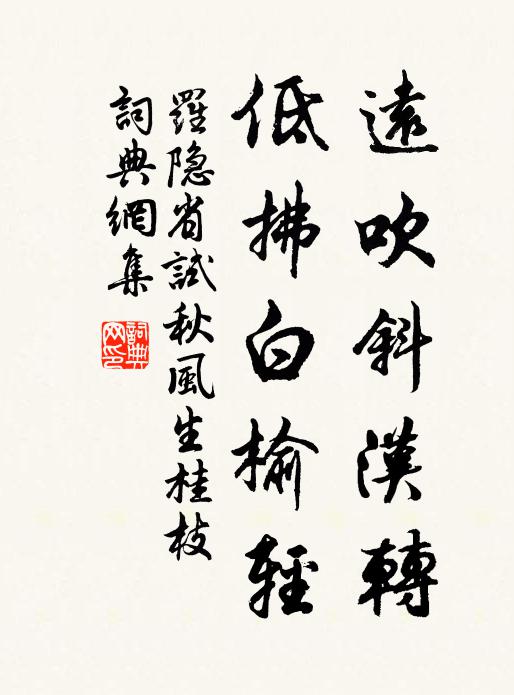 遠吹斜漢轉
低拂白榆輕
羅隐省試秋風生桂枝
詞典網集
詞典網印